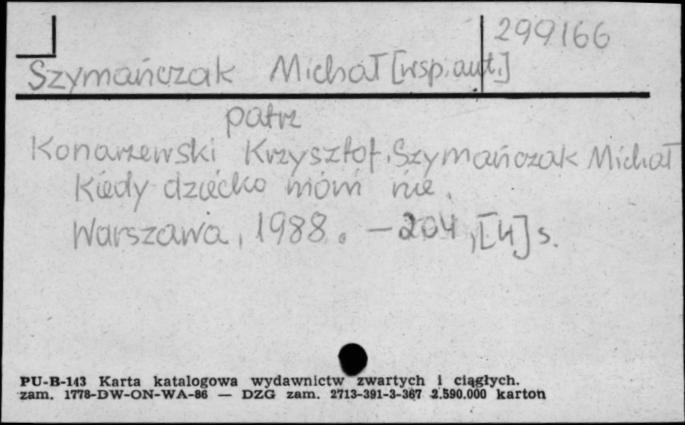 299166
Szymańczak Michał [wsp. aut.]
patrz
Konarzewski Krzysztof, Szymańczak Michał
Kiedy dziecko mówi nie.
Warszawa, 1988. — 204, [4] s.
PU-B-143 Karta katalogowa wydawnictw zwartych i ciągłych.
zam. 1778-DW-ON-WA-86 — DZG zam. 2713-391-3-367 2.590.000 karton